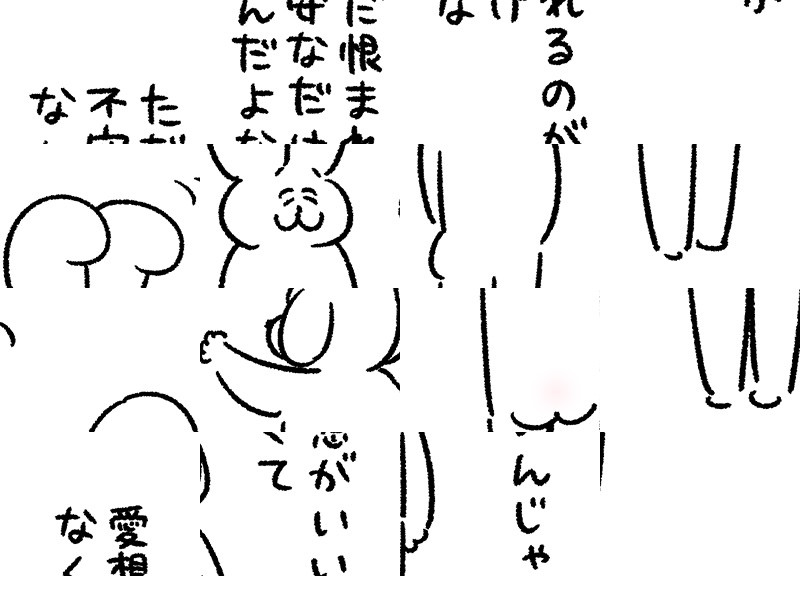 れるのが
な
だ恨まれ
安なだけ
んだよな
ただ
不安
な
んじゃ
想がいい
て
愛想
なく